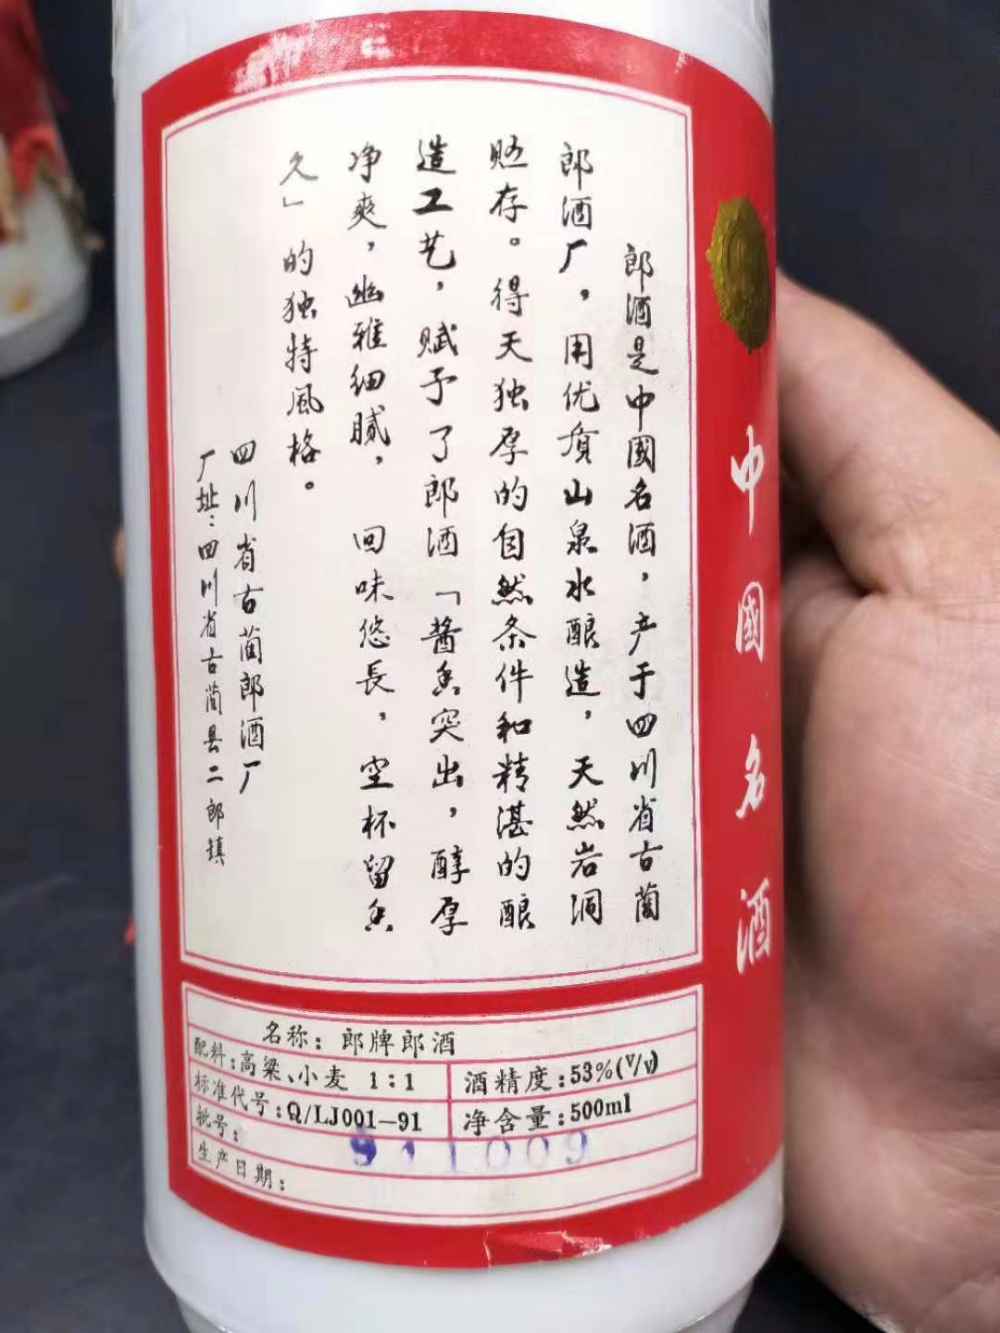 郎酒是中國名酒，产于四川省古蔺
郎酒厂，用优质山泉水酿造，天然岩洞
贮存。得天独厚的自然条件和精湛的酿
造工艺，赋予了郎酒「酱香突出，醇厚
净爽，幽雅细腻，回味悠長，空杯留香
久」的独特風格。
四川省古蔺郎酒厂
厂址：四川省古蔺县二郎镇
中國名酒
名称：郎牌郎酒
配料：高粱、小麦 1:1
酒精度：53%(V/V)
标准代号：Q/LJ001-91
净含量：500ml
批号：
911009
生产日期：